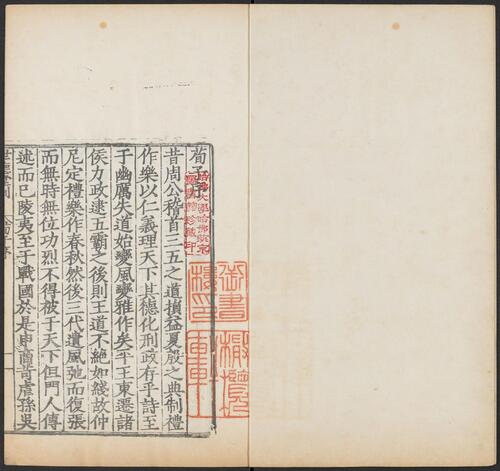 荀子序
昔周公稽首三五之道損益夏殷之典制禮
作樂以仁義理天下其德化刑政存乎詩至
于幽厲失道始變風變雅作矣平王東遷諸
侯力政逮五霸之後則王道不絕如綫故仲
尼定禮樂作春秋然後三代遺風弛而復張
而無時無位功烈不得被于天下但門人傳
述而已陵夷至于戰國於是申商苛虐孫吳
哈佛大學哈佛燕京
圖書館珍藏印